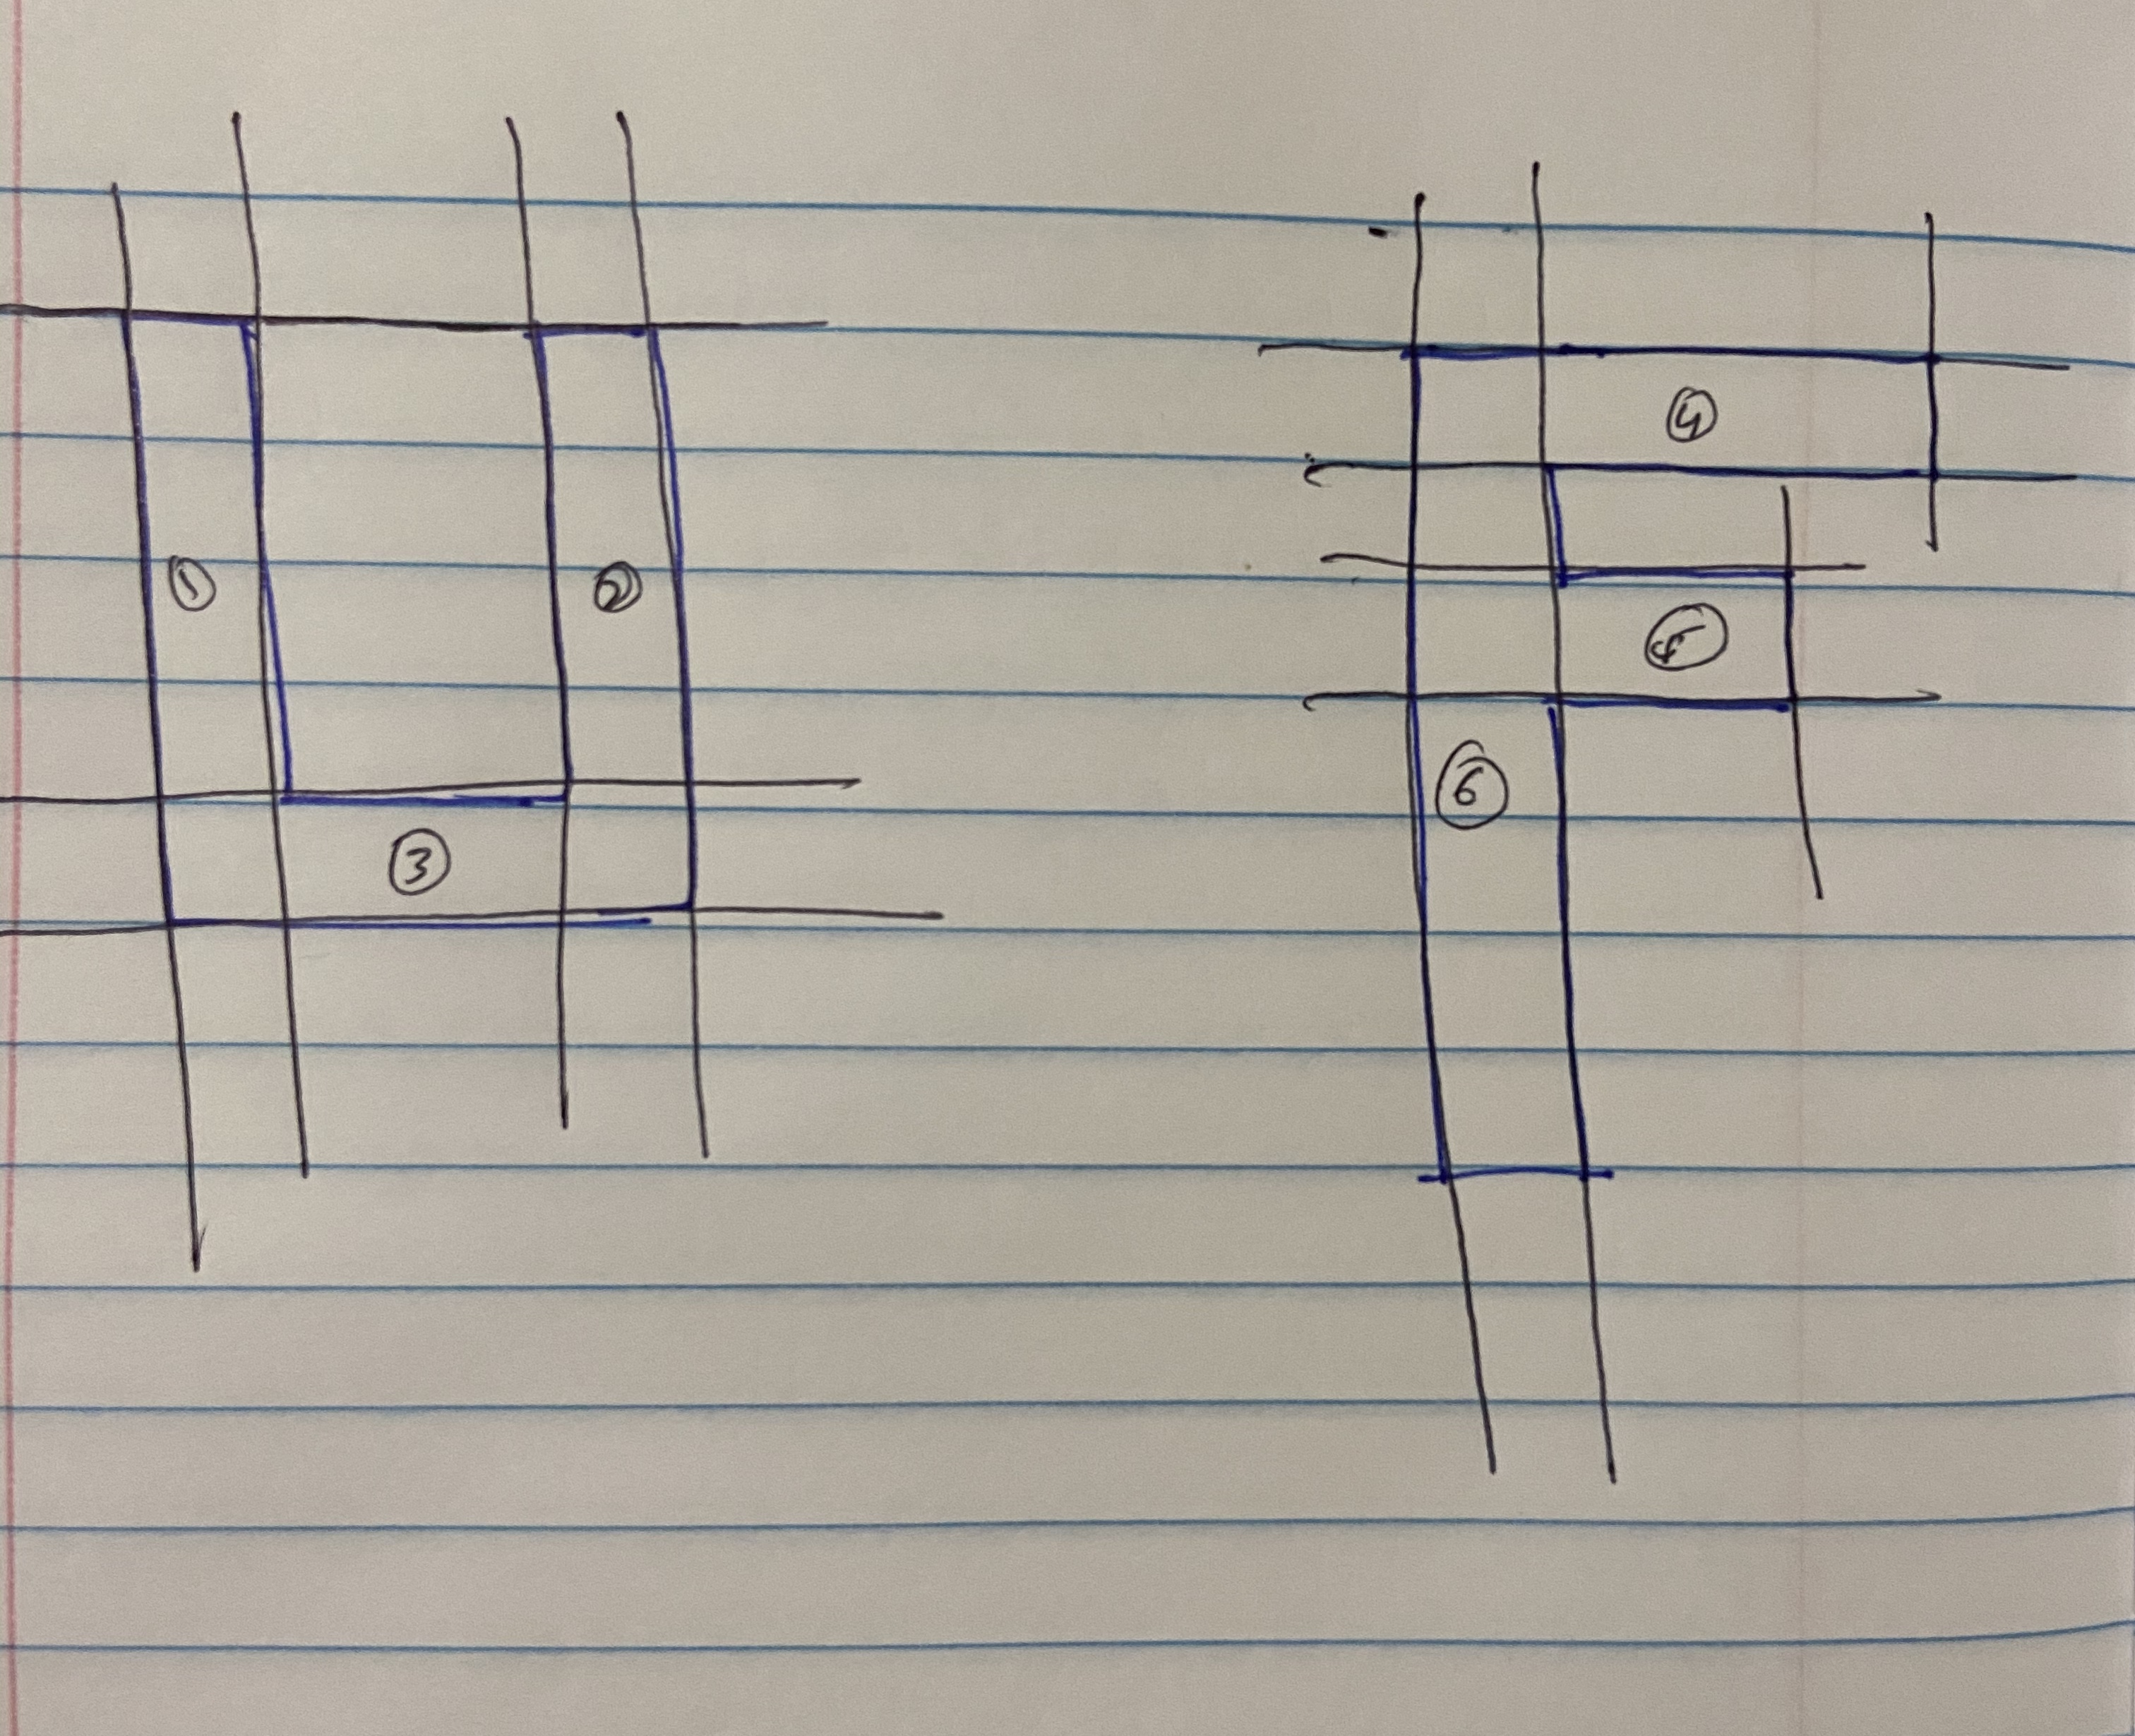 ①
②
③
④
⑤
⑥